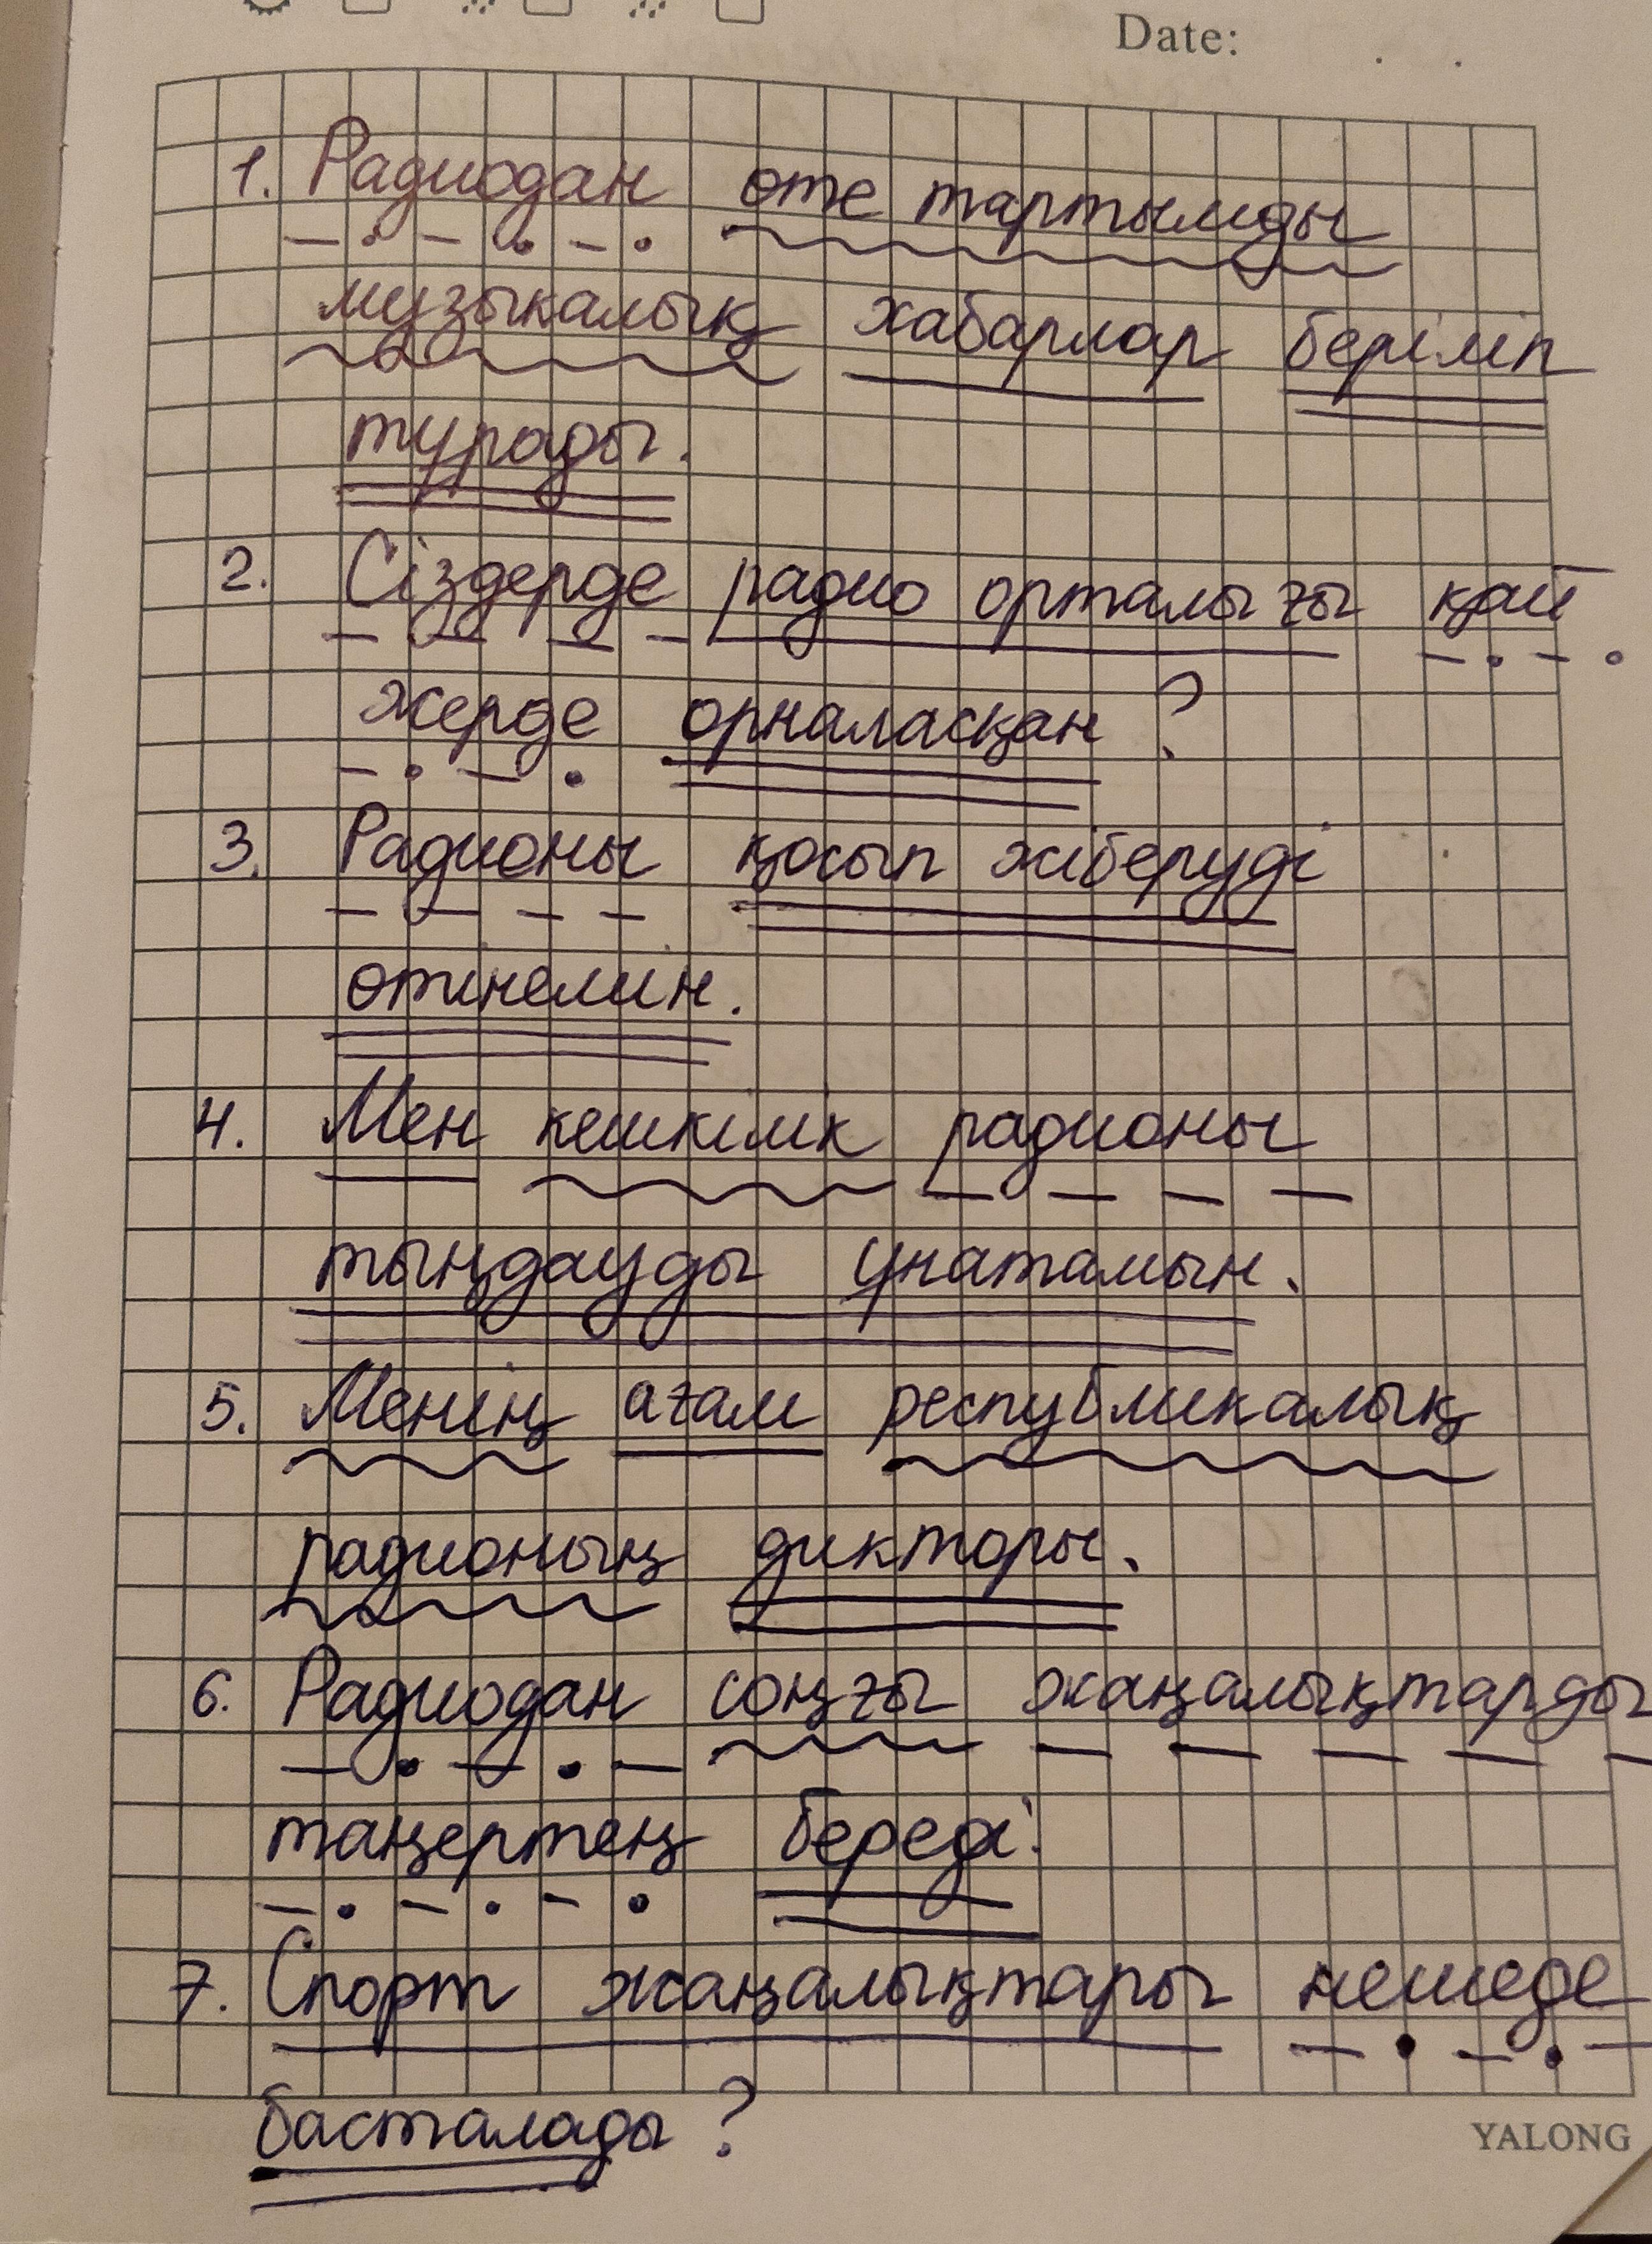 Date:
1. Радиодан өте тартымды
музыкалық хабарлар беріліп
тұрады.
2. Сіздерде радио орталығы қай
жерде орналасқан?
3. Радионы қосып жіберуді
өтінемін.
4. Мен кешкілік радионы
тыңдауды ұнатамын.
5. Менің ағам республикалық
радионың дикторы.
6. Радиодан соңғы жаңалықтарды
таңертең береді.
7. Спорт жаңалықтары нешеде
басталады?
YALONG